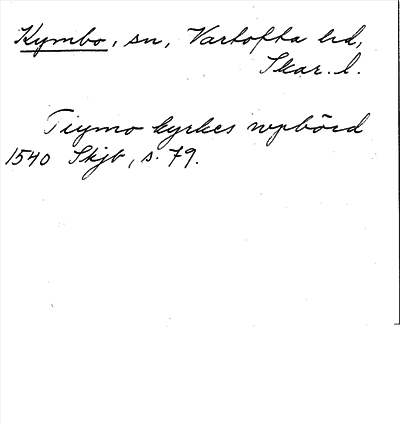 Kymbo, sn, Vartofta hd,
Skar. l.
Tiymo kyrkes wpbörd
1540 Skjb, s. 79.